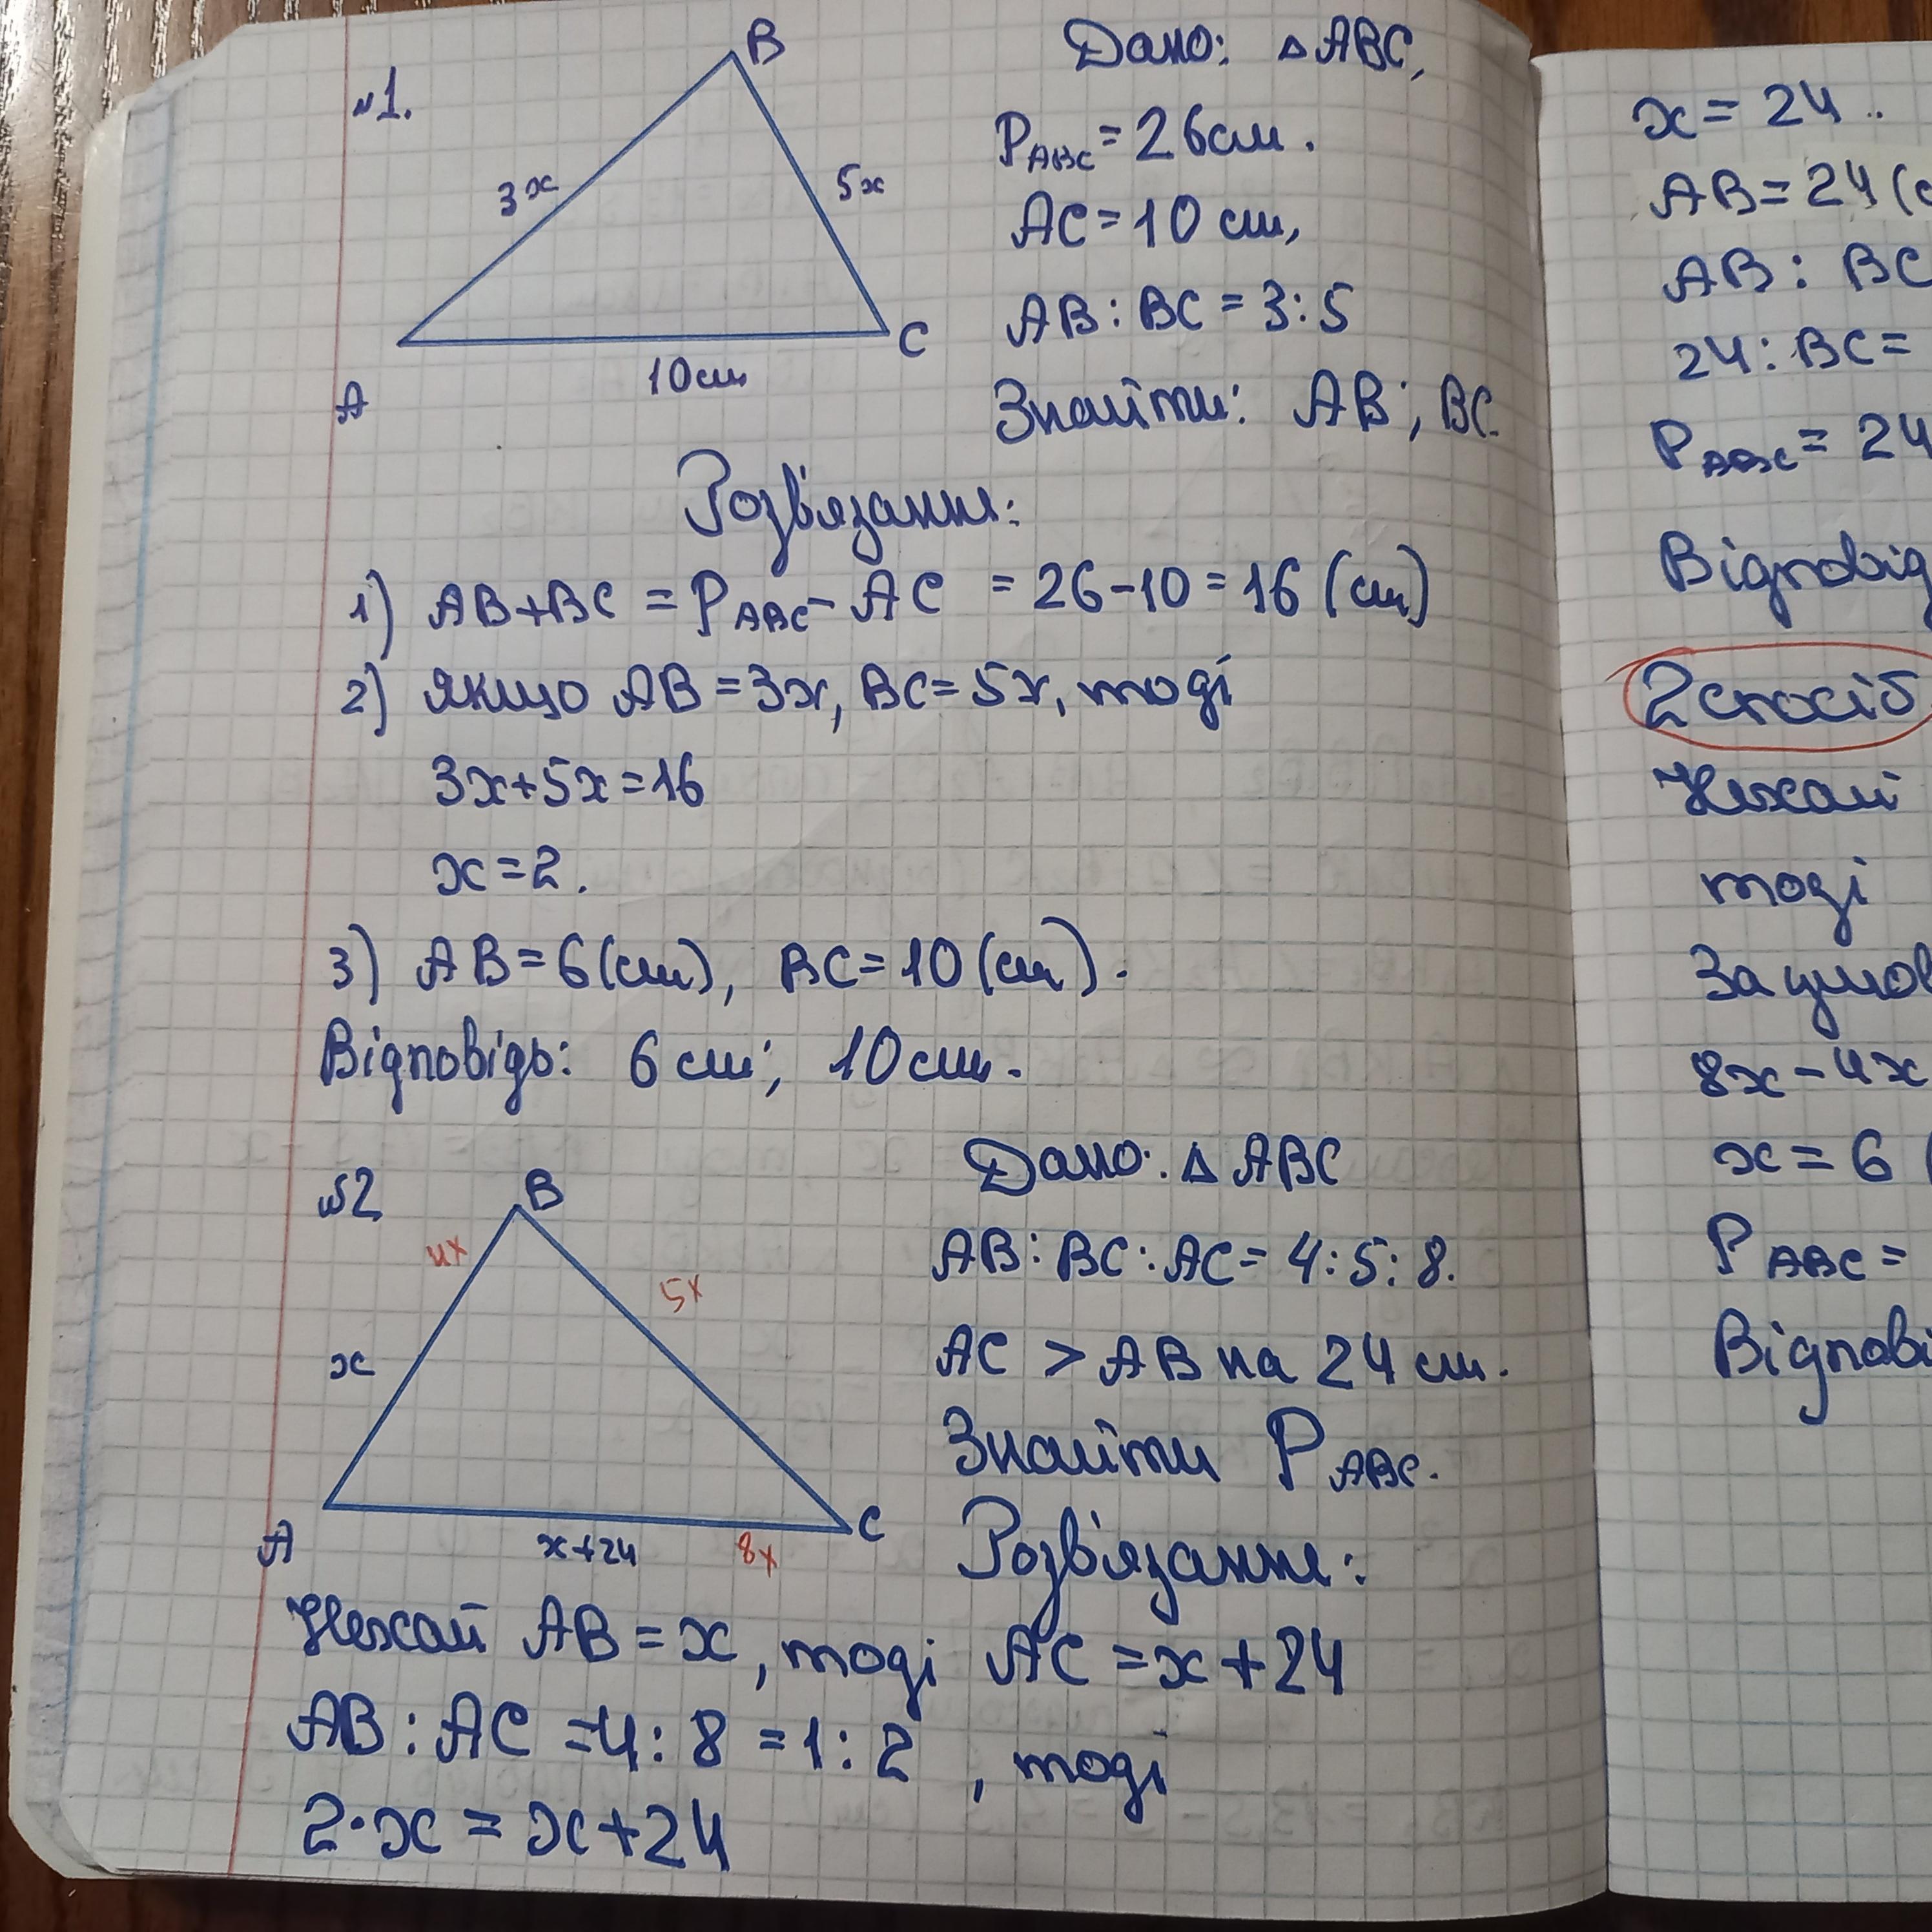 №1.
B
3x
5x
A
C
10см
Дано: △ABC,
P ABC = 26см.
AC = 10 см,
AB : BC = 3:5
Знайти: AB; BC.
Розв'язання:
1) AB+BC = P ABC - AC = 26-10 = 16 (см)
2) Якщо AB = 3x, BC = 5x, тоді
3x+5x=16
x = 2.
3) AB = 6(см), BC = 10 (см).
Відповідь: 6 см; 10см.
№2
B
4x
5x
x
A
x+24
8x
C
Дано: △ ABC
AB : BC : AC = 4:5:8.
AC > AB на 24 см.
Знайти P ABC.
Розв'язання:
Нехай AB = x, тоді AC = x+24
AB : AC = 4 : 8 = 1 : 2, тоді
2·x = x+24
x = 24.
AB = 24 (
AB : BC
24 : BC =
P ABC = 24
Відповід
2 спосіб
Нехай
тоді
За умов
8x - 4x
x = 6 (
P ABC =
Відпові